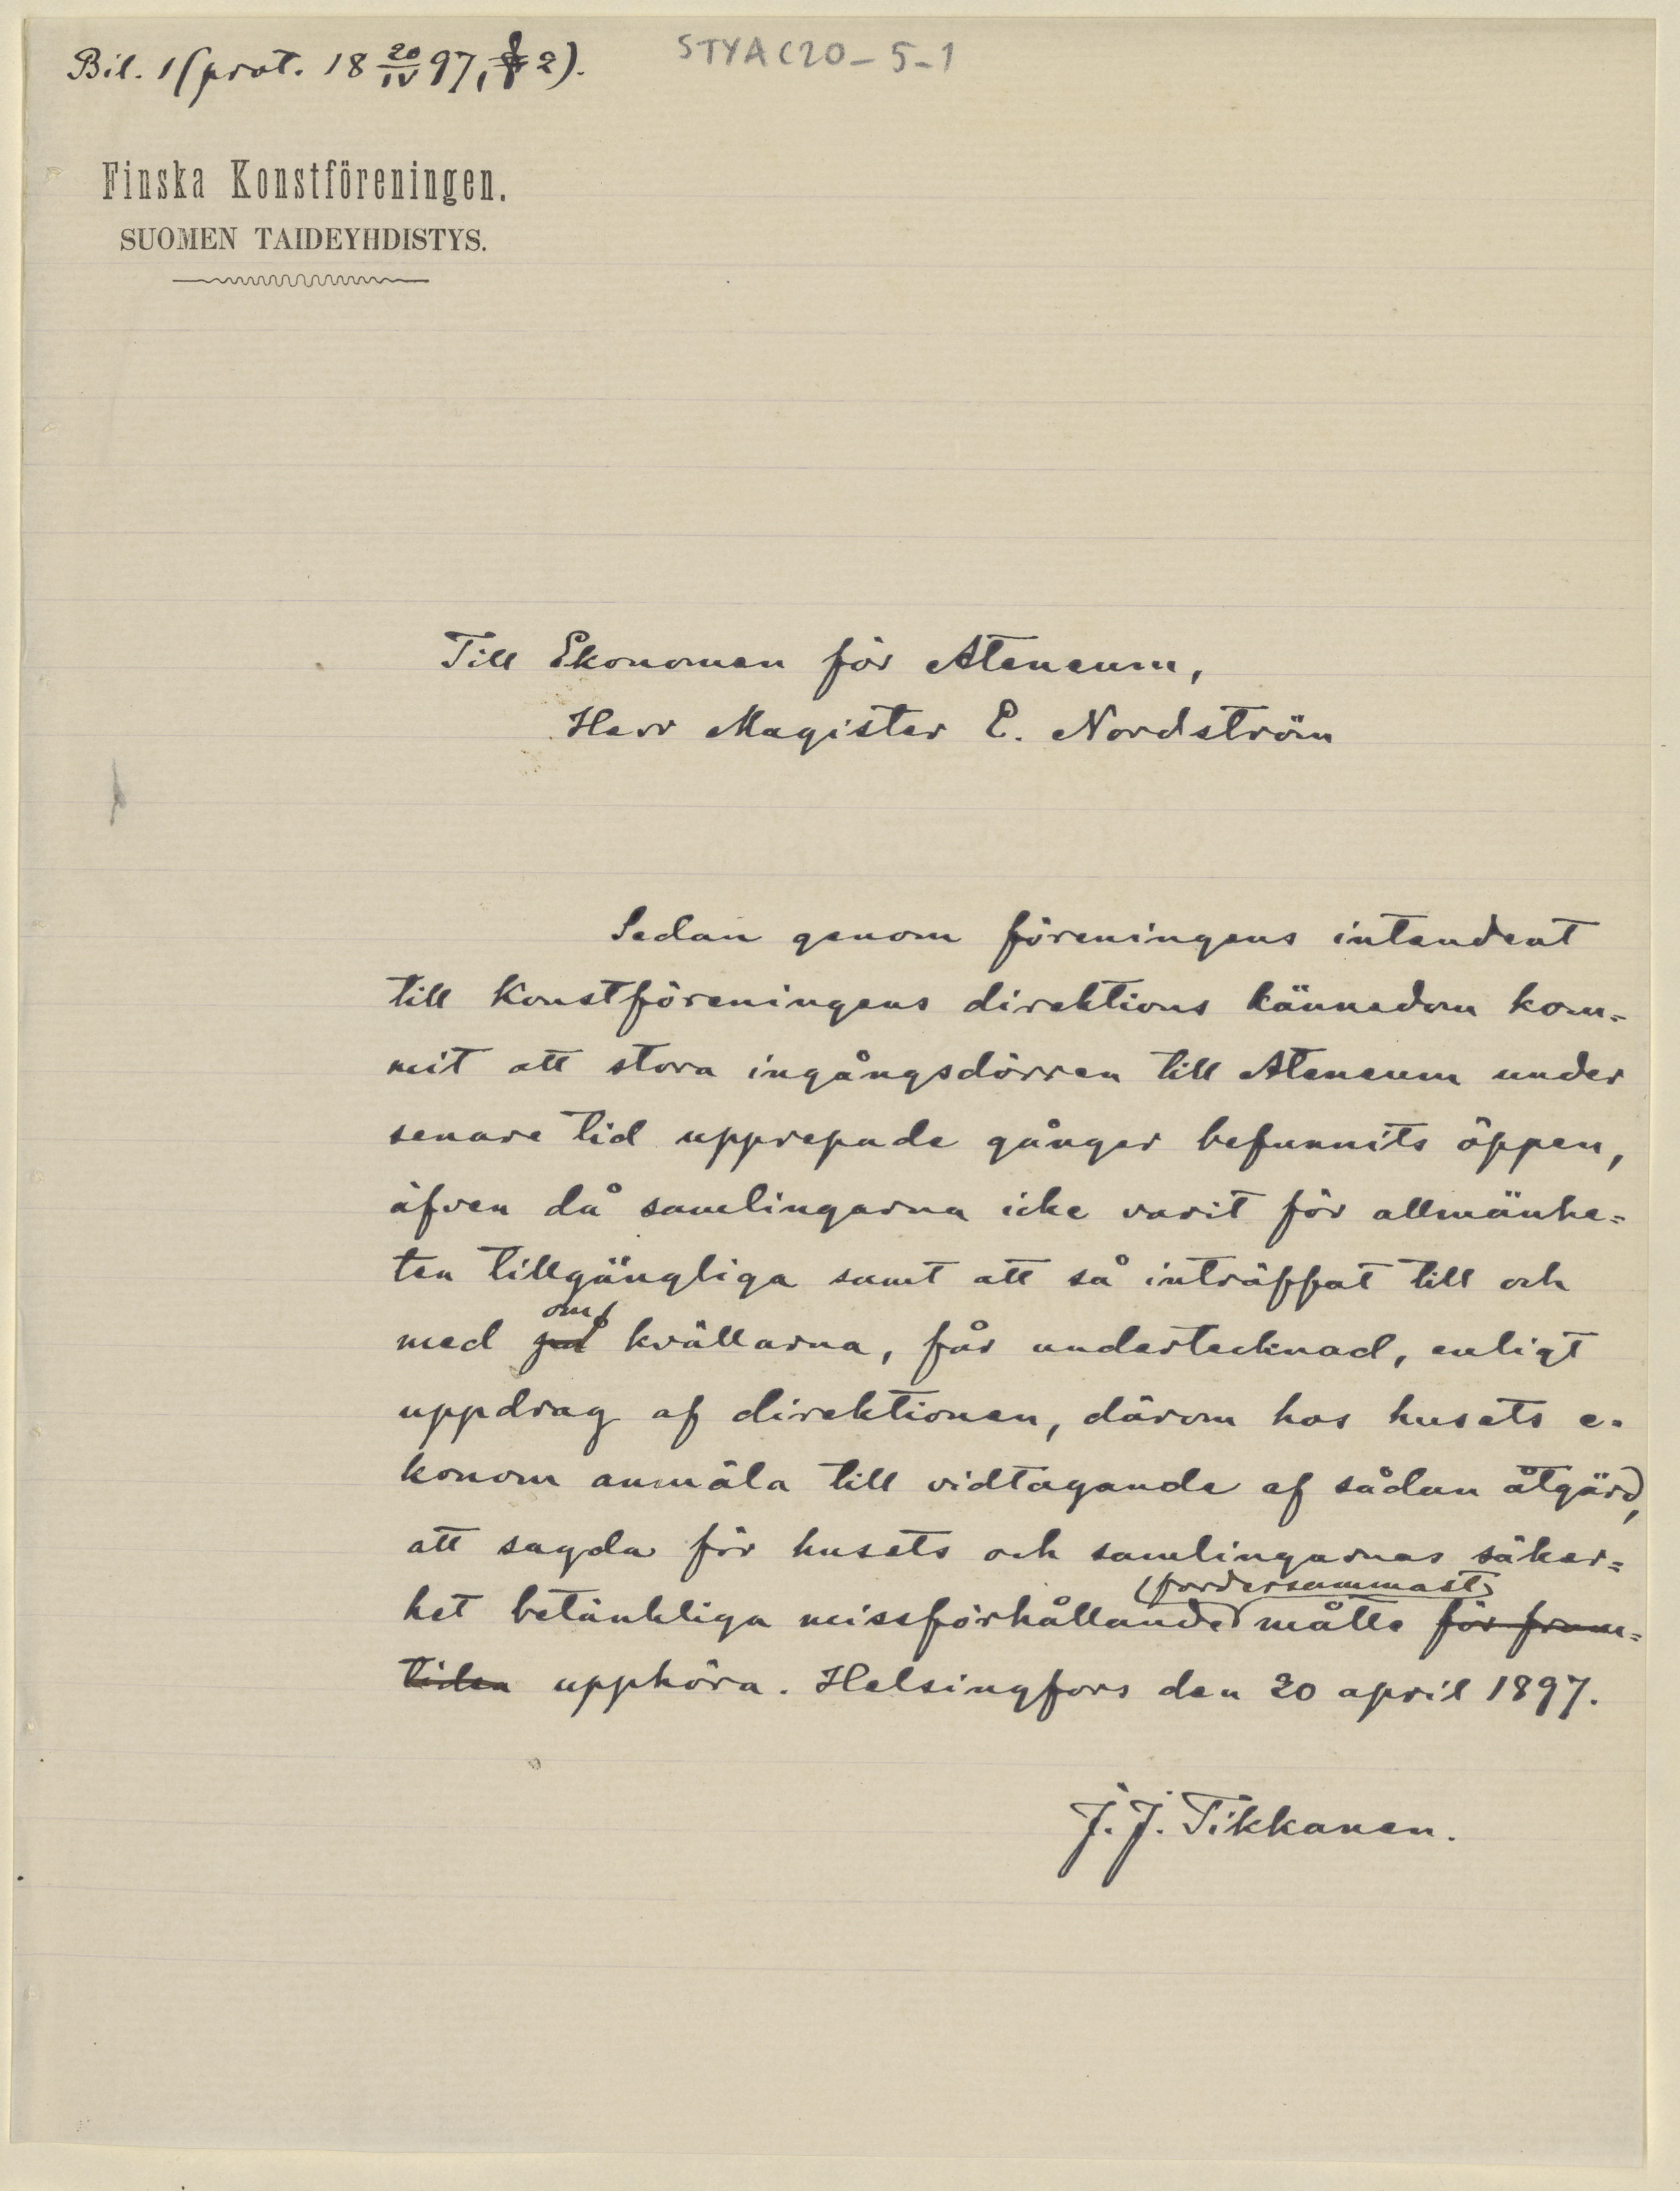 Bil. 1 (prot. 18 20/IV 97, § 2).
STYA C20-5-1
Finska Konstföreningen.
SUOMEN TAIDEYHDISTYS.
Till Ekonomen för Ateneum,
Herr Magister E. Nordström
Sedan genom föreningens intendent
till Konstföreningens direktions kännedom kom=
mit att stora ingångsdörren till Ateneum under
senare tid upprepade gånger befunnits öppen,
äfven då samlingarna icke varit för allmänhe=
ten tillgängliga samt att så inträffat till och
om
med på kvällarna, får undertecknad, enligt
uppdrag af direktionen, därom hos husets e-
konom anmäla till vidtagande af sådan åtgärd,
att sagda för husets och samlingarnas säker=
(fordersammast)
het betänkliga missförhållande måtte för fram=
tiden upphöra. Helsingfors den 20 april 1897.
J. J. Tikkanen.